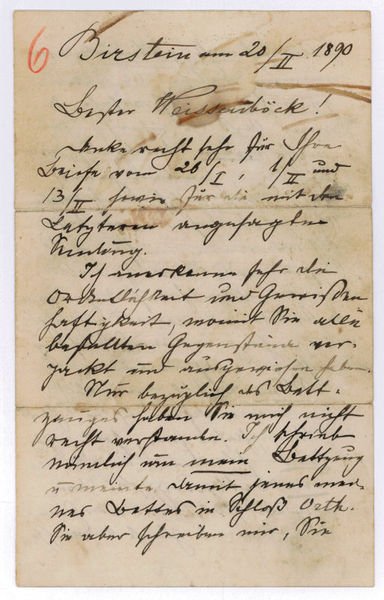 6
Birstein am 20/II 1890
Bester Weissenböck!
Danke recht sehr für Ihre
Briefe vom 26/I, 1/II und
13/II sowie für die mit dem
Letzteren angesagte
Sendung.
Ich anerkenne sehr die
Ordentlichkeit und Gewissen
haftigkeit, womit Sie alle
bestellten Gegenstände ver-
packt und ausgewiesen haben.
Nur bezüglich des Bett-
zeuges haben Sie mich nicht
recht verstanden. Ich schrieb
nämlich um mein Bettzeug
u meinte damit jenes mei-
nes Bettes in Schloß Orth.
Sie aber schreiben mir, Sie